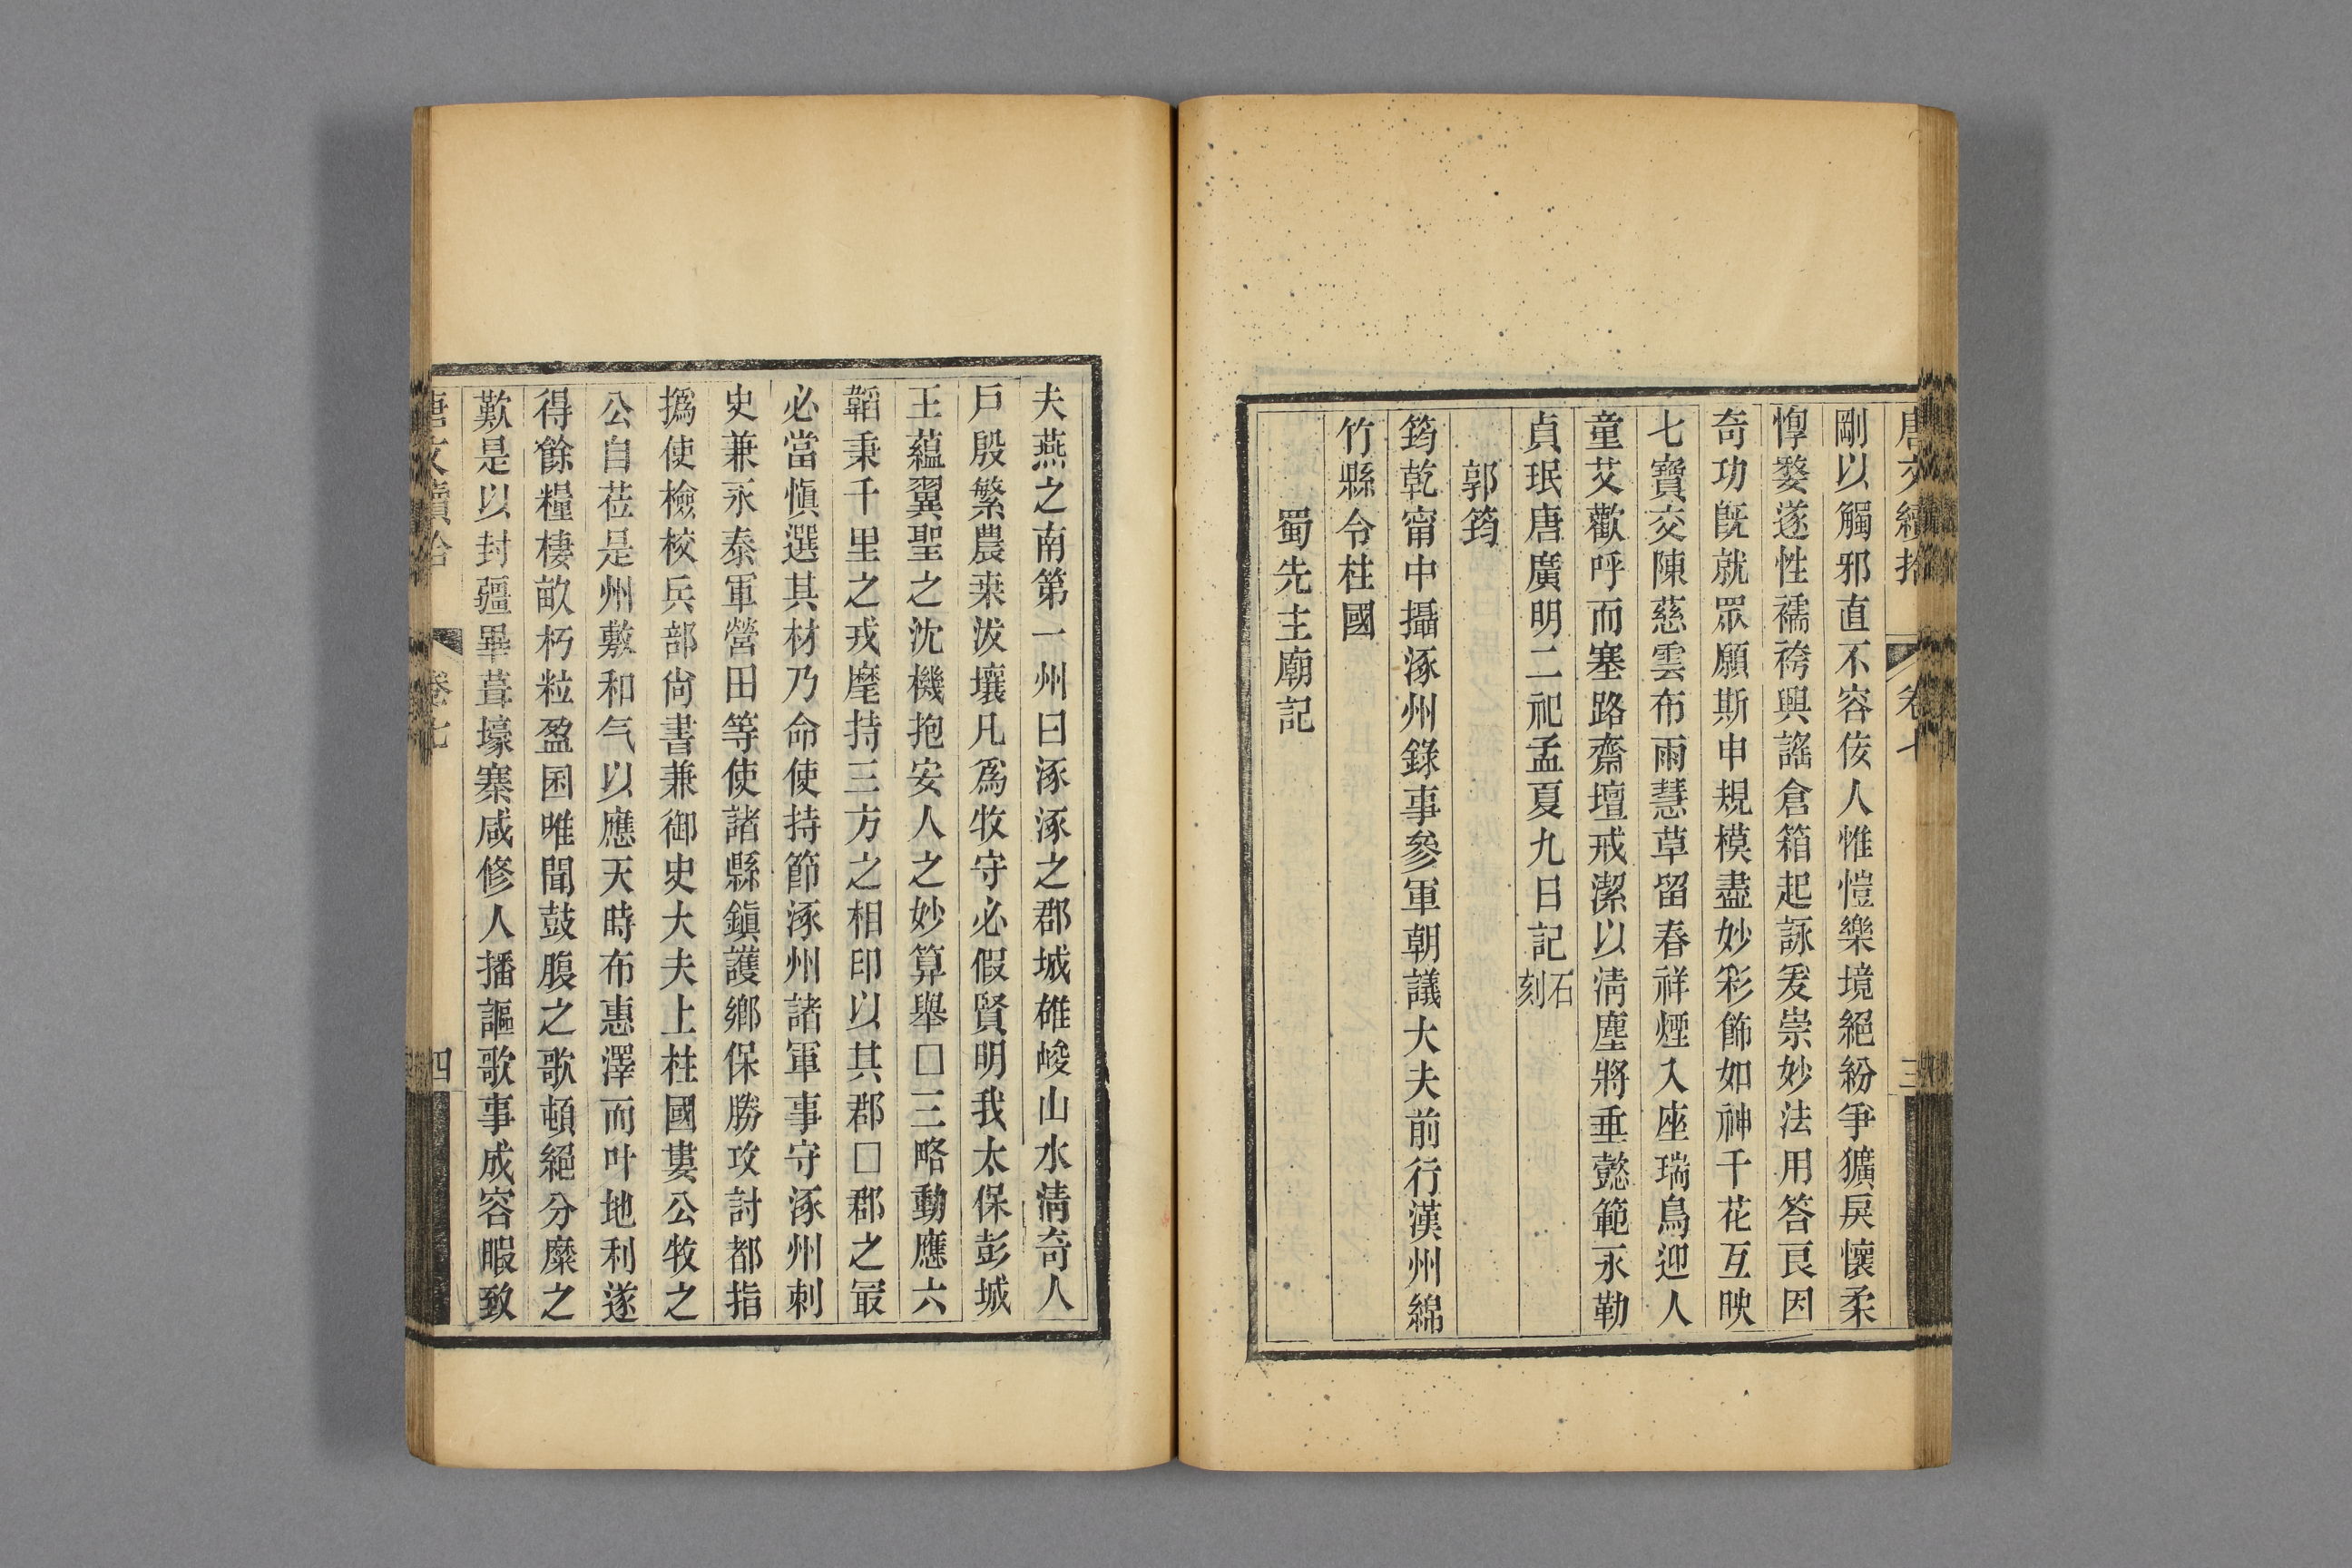 唐文續拾 卷七 三
剛以觸邪直不容侫人惟愷樂境絕紛爭獷戾懷柔
惸嫠遂性襦袴興謠倉箱起詠爰崇妙法用答良因
奇功旣就眾願斯申規模盡妙彩飾如神千花互映
七寶交陳慈雲布雨慧草留春祥煙入座瑞鳥迎人
童艾歡呼而塞路齋壇戒潔以淸塵將垂懿範永勒
貞珉唐廣明二祀孟夏九日記石刻
郭筠
筠乾甯中攝涿州錄事參軍朝議大夫前行漢州綿
竹縣令柱國
蜀先主廟記
夫燕之南第一州曰涿涿之郡城雄峻山水淸奇人
戶殷繁農桒沃壤凡爲牧守必假賢明我太保彭城
王蘊翼聖之沈機抱安人之妙算舉□三略動應六
韜秉千里之戎麾持三方之相印以其郡□郡之㝡
必當愼選其材乃命使持節涿州諸軍事守涿州刺
史兼永泰軍營田等使諸縣鎭護鄉保勝攻討都指
撝使檢校兵部尙書兼御史大夫上柱國婁公牧之
公自莅是州敷和气以應天時布惠澤而叶地利遂
得餘糧棲畝朽粒盈囷唯聞鼓腹之歌頓絕分糜之
歎是以封疆畢葺壕寨咸修人播謳歌事成容暇致
唐文續拾 卷七 四